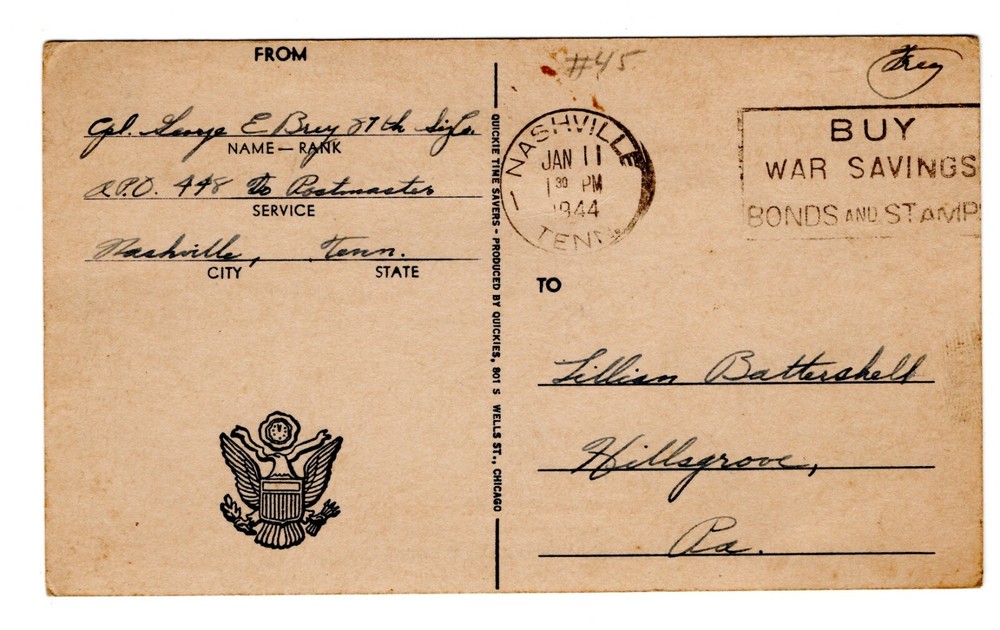 FROM
Cpl. George E Brey 27th Sig Co.
NAME — RANK
A.P.O. 448 % Postmaster
SERVICE
Nashville, Tenn.
CITY STATE
QUICKIE TIME SAVERS - PRODUCED BY QUICKIES, 801 S WELLS ST., CHICAGO
#45
Free
NASHVILLE
JAN 11
1 30 PM
1944
TENN.
BUY
WAR SAVINGS
BONDS AND STAMPS
TO
Lillian Battershell
Hillsgrove,
Pa.